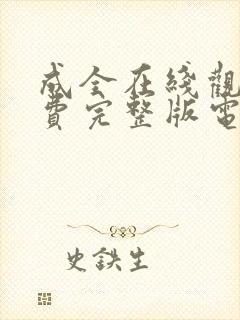 成全在綫觀
費完整版電
史鉄生